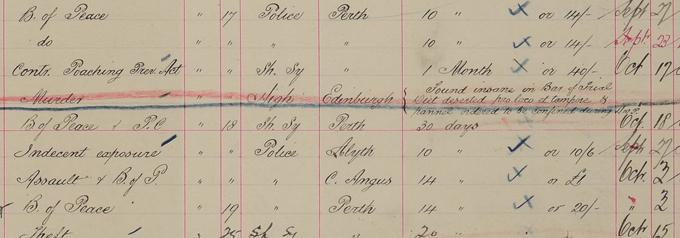 B. of Peace " 17 Police Perth 10 " or 14/- Sept 27
do " " " " 10 " or 14/- Sept 23
Contr. Poaching Prev. Act " " Sh. Sy " 1 Month or 40/- Oct 17
Murder " " High Edinburgh { Found insane in Bar of Trial
Diet deserted pro loco et tempore &
Pannel ordered to be confined during
B of Peace & P.C " 18 Sh. Sy Perth 30 days Oct. 18
Indecent exposure " " Police Alyth 10 " or 10/6 Sept 27
Assault & B. of P. " " " C. Angus 14 " or £1 Oct. 3
B. of Peace " 19 " Perth 14 " or 20/- " 3
Theft " 25 Sh. Sy " 20 " Oct 15